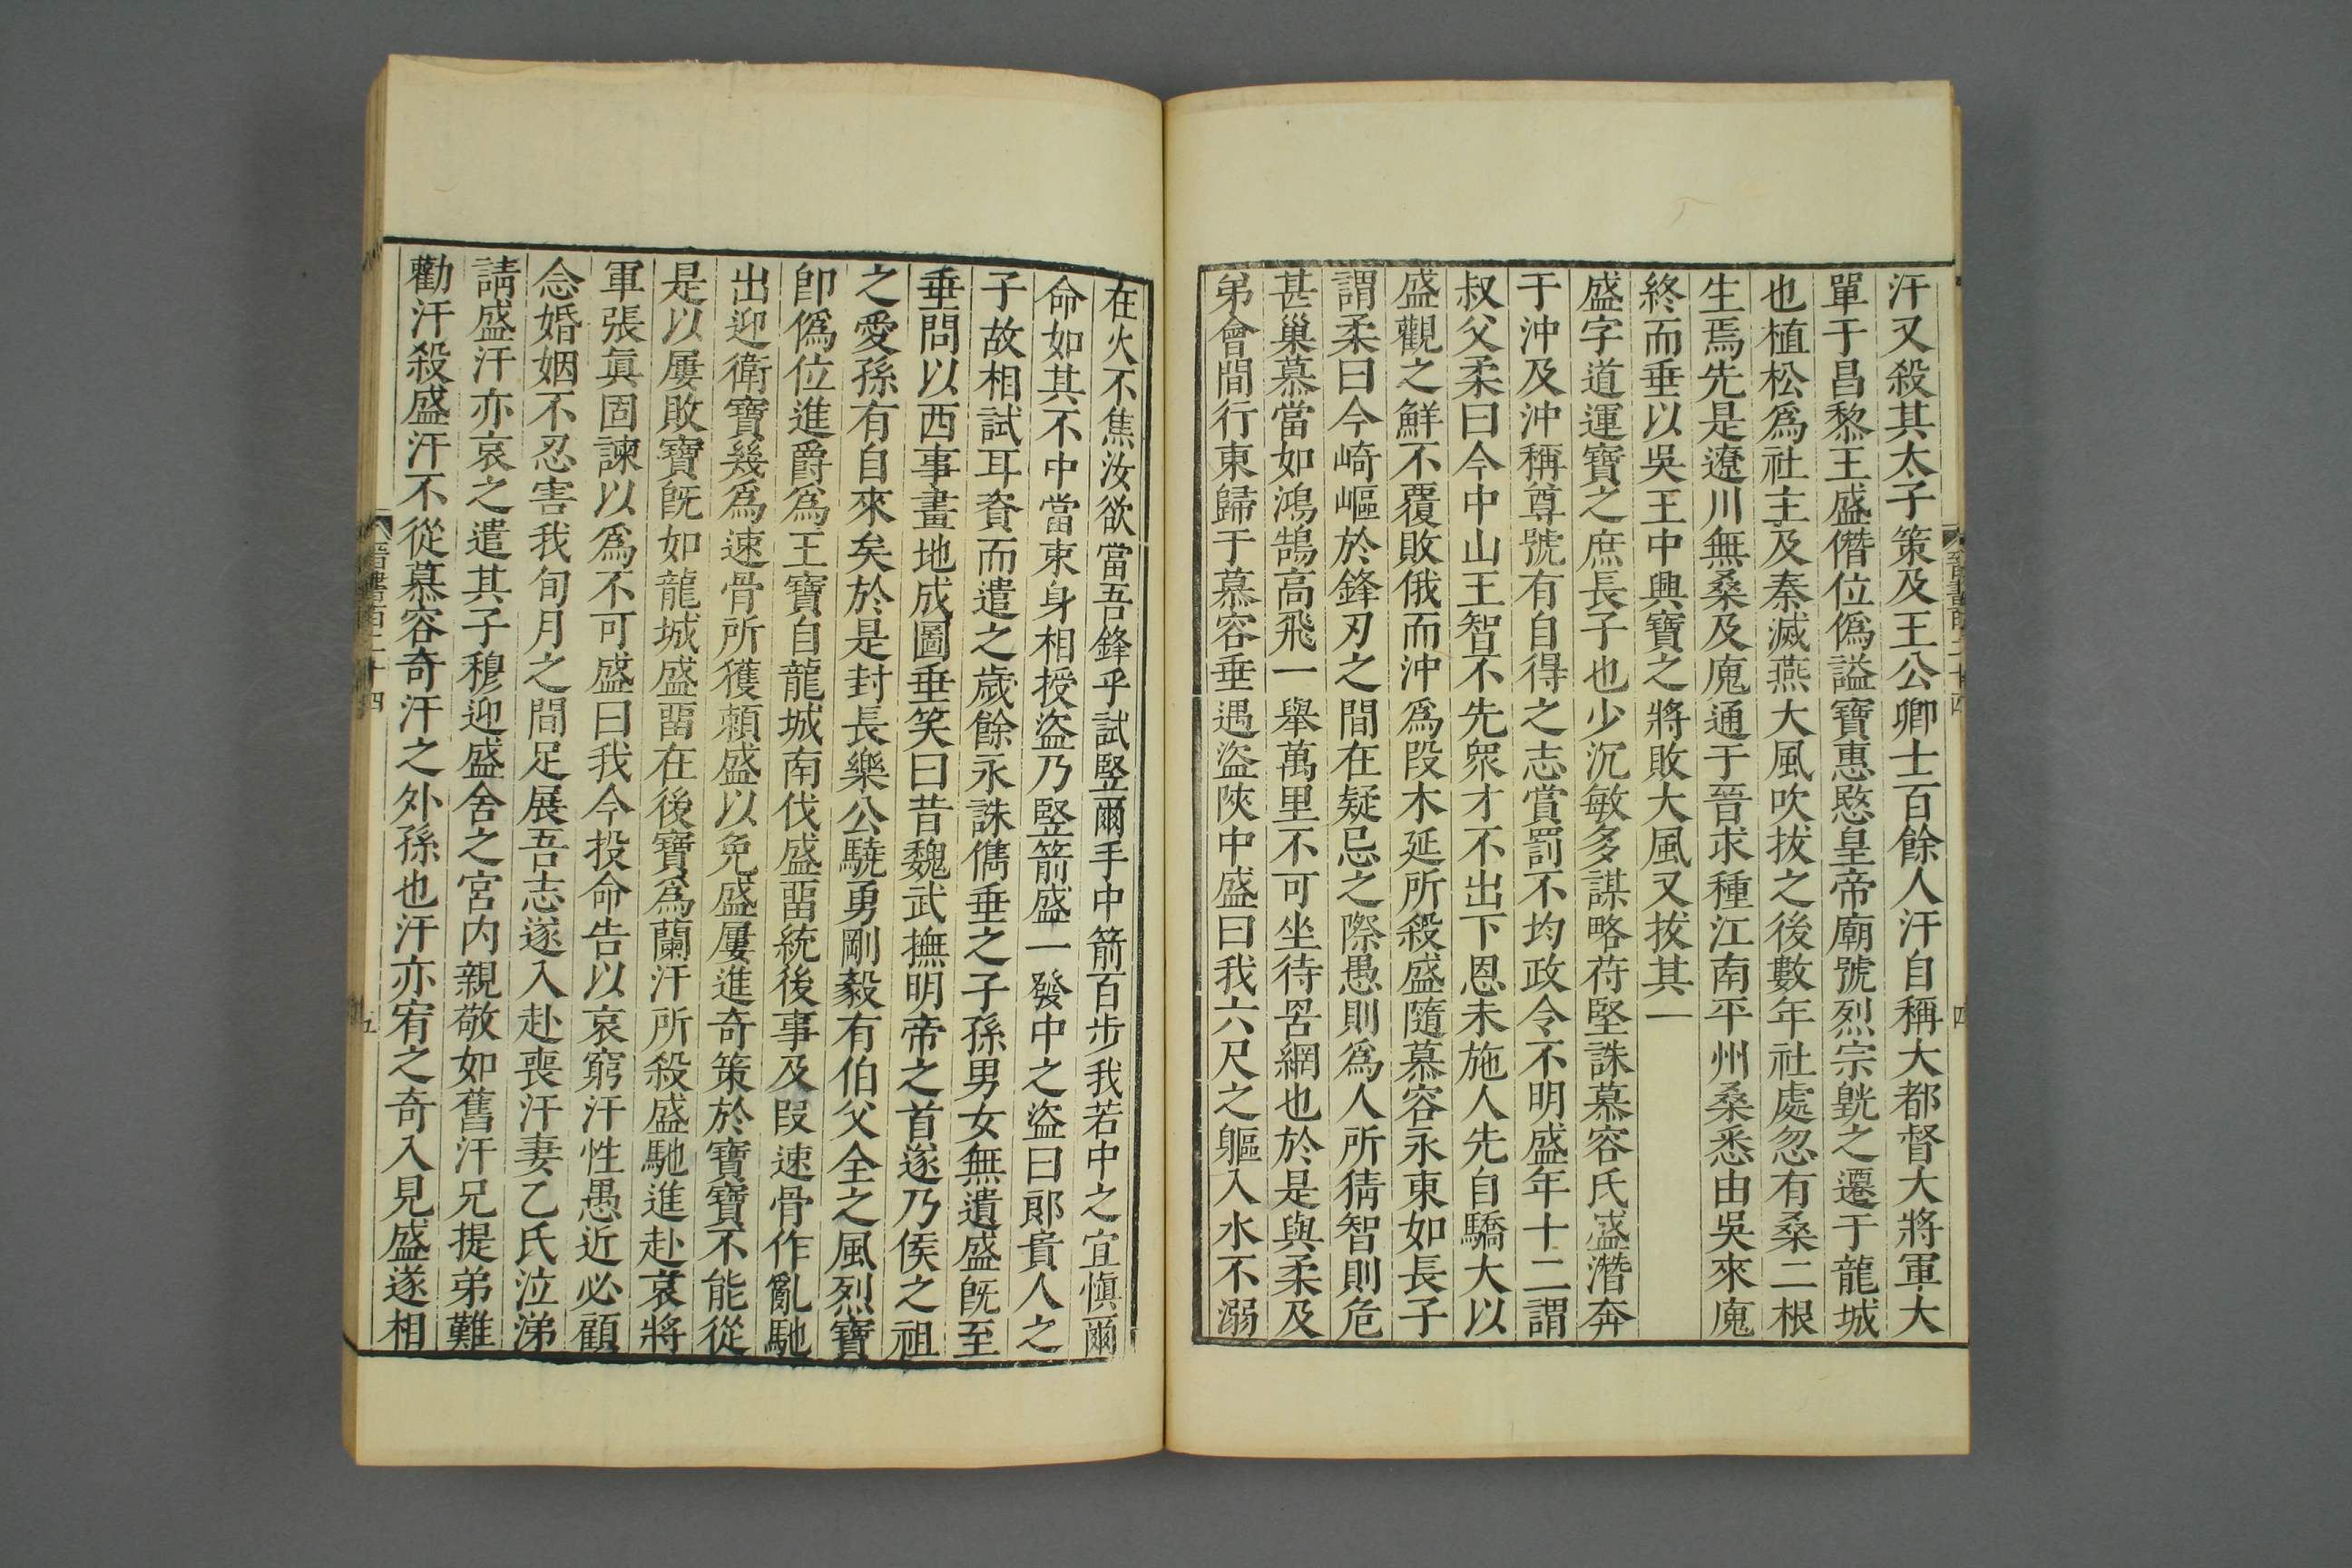 汗又殺其太子策及王公卿士百餘人汗自稱大都督大將軍大
單于昌黎王盛僭位僞謚寶惠愍皇帝廟號烈宗皝之遷于龍城
也植松爲社主及秦滅燕大風吹拔之後數年社處忽有桑二根
生焉先是遼川無桑及廆通于晉求種江南平州桑悉由吳來廆
終而垂以吳王中興寶之將敗大風又拔其一
盛字道運寶之庶長子也少沉敏多謀略苻堅誅慕容氏盛潛奔
于沖及沖稱尊號有自得之志賞罰不均政令不明盛年十二謂
叔父柔曰今中山王智不先衆才不出下恩未施人先自驕大以
盛觀之鮮不覆敗俄而沖爲段木延所殺盛隨慕容永東如長子
謂柔曰今崎嶇於鋒刃之間在疑忌之際愚則爲人所猜智則危
甚巢幕當如鴻鵠高飛一舉萬里不可坐待罟網也於是與柔及
弟會間行東歸于慕容垂遇盜陝中盛曰我六尺之軀入水不溺
在火不焦汝欲當吾鋒乎試竪爾手中箭百步我若中之宜愼爾
命如其不中當束身相授盜乃竪箭盛一發中之盜曰郎貴人之
子故相試耳資而遣之歲餘永誅儁垂之子孫男女無遺盛旣至
垂問以西事畫地成圖垂笑曰昔魏武撫明帝之首遂乃侯之祖
之愛孫有自來矣於是封長樂公驍勇剛毅有伯父全之風烈寶
卽僞位進爵爲王寶自龍城南伐盛畱統後事及段速骨作亂馳
出迎衛寶幾爲速骨所獲賴盛以免盛屢進奇策於寶寶不能從
是以屢敗寶旣如龍城盛畱在後寶爲蘭汗所殺盛馳進赴哀將
軍張眞固諫以爲不可盛曰我今投命告以哀窮汗性愚近必顧
念婚姻不忍害我旬月之間足展吾志遂入赴喪汗妻乙氏泣涕
請盛汗亦哀之遣其子穆迎盛舍之宮内親敬如舊汗兄提弟難
勸汗殺盛汗不從慕容奇汗之外孫也汗亦宥之奇入見盛遂相
晉書百二十四
五